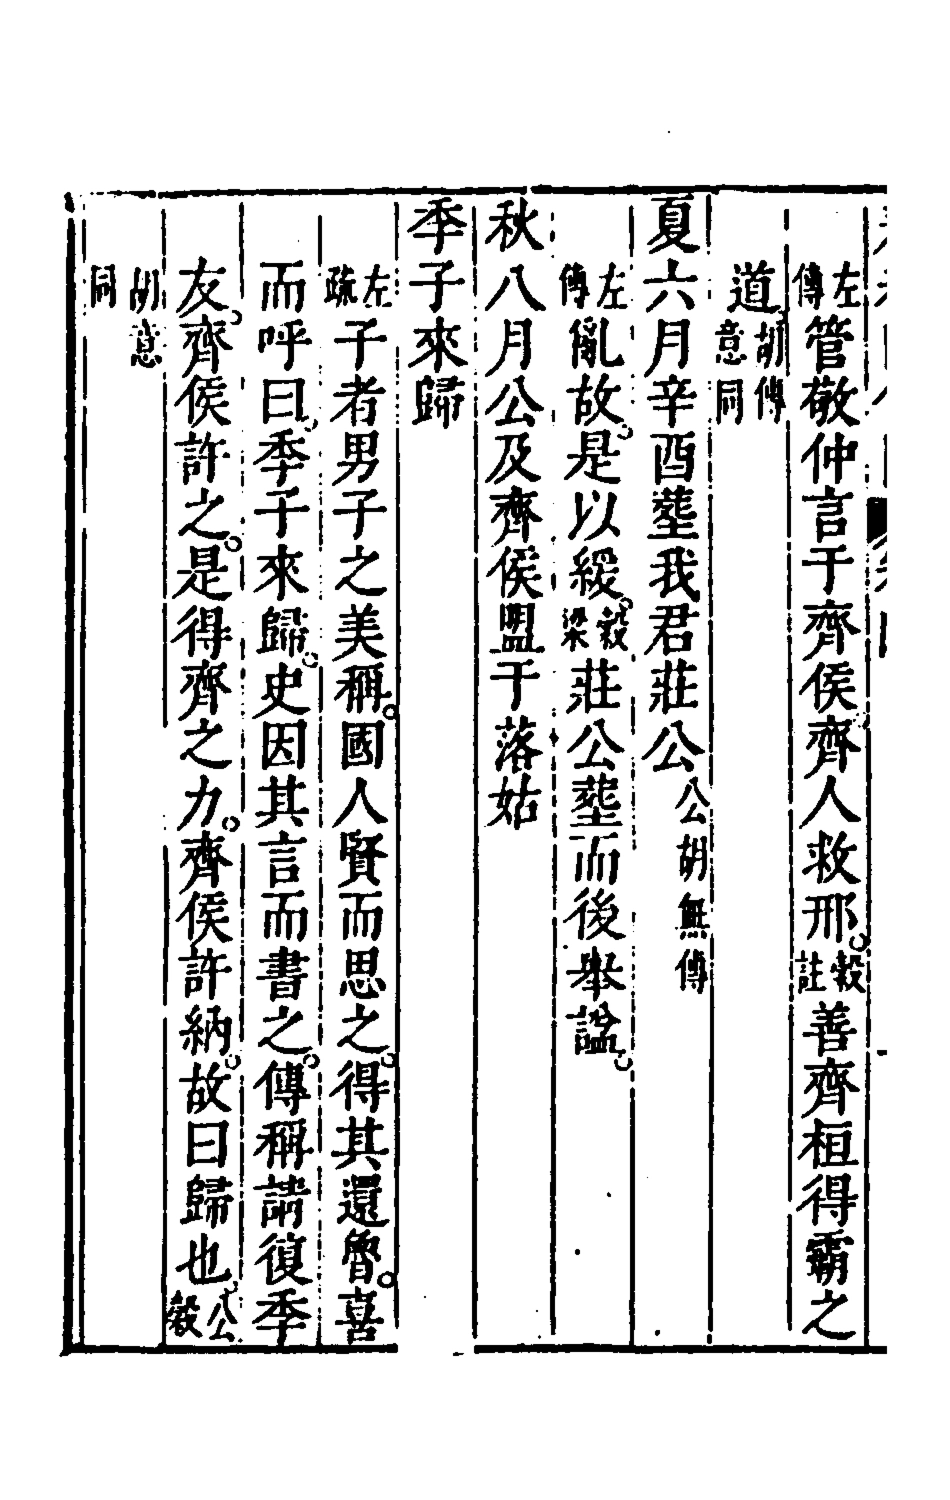 左傳管敬仲言于齊侯齊人救邢穀註善齊桓得霸之
道胡傳意同
夏六月辛酉塟我君莊公公胡無傳
左傳亂故是以緩穀梁莊公塟而後舉諡
秋八月公及齊侯盟于落姑
季子來歸
左疏子者男子之美稱國人賢而思之得其還魯喜
而呼曰季子來歸史因其言而書之傳稱請復季
友齊侯許之是得齊之力齊侯許納故曰歸也公穀
胡意同